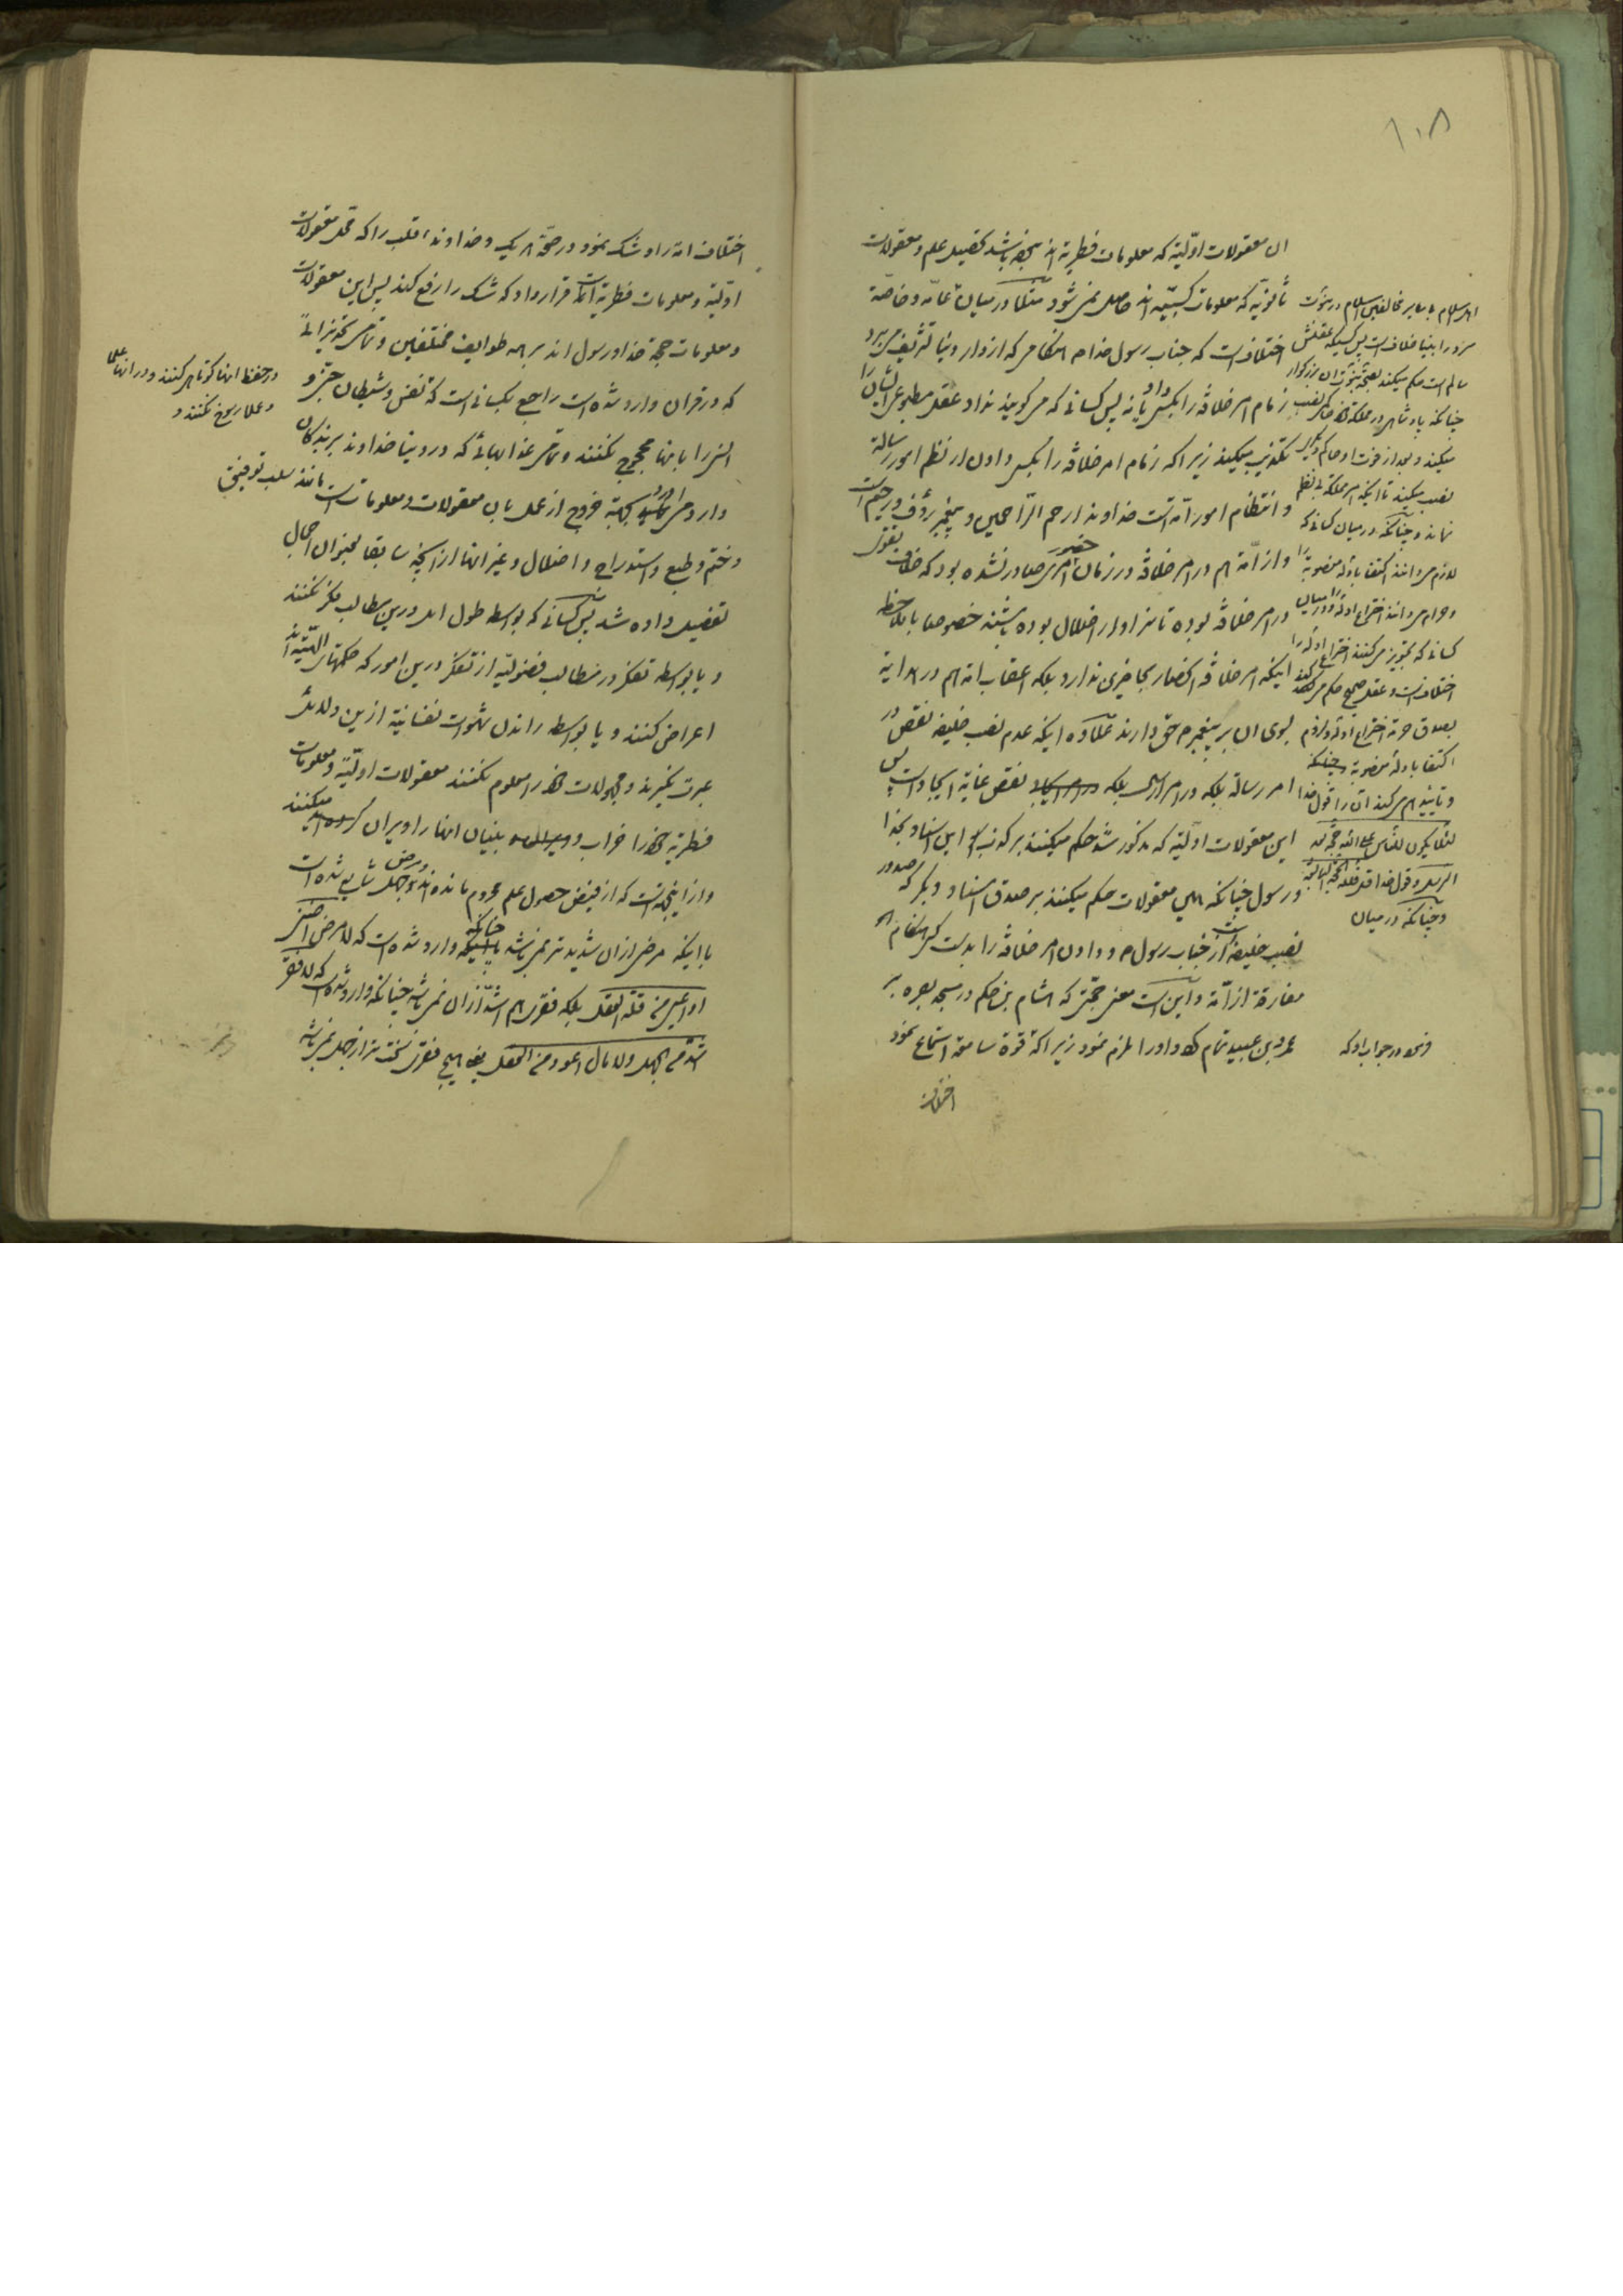 ۱۰۸
ان معقولات اوّلیّه که معلومات فطریّه اند نبوده باشد تحصیل علم و معقولات
ثانویّه که معلومات کسبیّه اند حاصل نمی شود مثلا در میان عامّه و خاصّه
اختلافست که جناب رسول خدا م هنگامی که از دار دنیا تشریف می برد
زمام امر خلافة را بکسی داد یا نه پس کسانی که می گویند نداد عقل مطبوعی ایشان را
تکذیب میکند زیرا که زمام امر خلافة را بکسی دادن از نظم امور رسالة
و انتظام امور امّة است خداوند ارحم الرّاحمین و پیغمبر رؤف و رحیم است
و از امّة هم در امر خلافة در زمان حضور امری صادر نشده بود که خلاف بقول
در امر خلافة بوده تا سزاوار اضلال بوده باشند خصوصا با ملاحظه
اینکه امر خلافة انحصار بحاضرین ندارد بلکه اعقاب امة هم در هدایة
بسوی ان بر پیغمبر م حقّ دارند علاوه اینکه عدم نصب خلیفه نقص در
امر رسالة بلکه در امر الهی بلکه نقص غایة ایجاد است پس
این معقولات اولیّه که مذکور شد حکم میکنند بر کذب این اسناد بخدا
و رسول چنانکه همین معقولات حکم میکنند بر صدق اسناد دیگر که صدور
نصب خلیفه است از جناب رسول م و دادن امر خلافة را بدست کسی هنگام
مفارقة از امّة و این است معنی حجّتی که هشام بن حکم در مسجد بصره بر
عمرو بن عبید تمام کرد و او را ملزم نمود زیرا که قوّه سامعه استماع نمود
اختلاف
اهل اسلام با سایر مخالفین اسلام در نبوّت
سرور انبیا خلافست پس کسیکه عقلش
سالم است حکم میکند بصحة نبوّة ان بزرگوار
چنانکه پادشاهی در مملکة خود حاکمی نصب
میکند و بعد از فوت او حاکم دیگر
نصب میکند تا اینکه امر مملکة بی نظم
نماند و چنانکه در میان کسانی که
لازم میدانند اکتفا بادلّه منصوبه را
و حرام میدانند اختراع ادله را و در میان
کسانی که تجویز می کنند اختراع ادله را
اختلافست و عقل صحیح حکم می کند
بصدق حرمة اختراع ادله و لزوم
اکتفا بادله منصوبه چنانکه
و تایید هم میکند ان را قول خدا
لئلا یکون للنّاس علی الله حجّة بعد
الرسل و قول خدا قل فلله الحجّة البالغة
و چنانکه در میان
اختلاف امّة را و شک نمود در صحّة هر یک و خداوند قلب را که محل معقولات
اوّلیّه و معلومات فطریّه است قرار داد که شک را رفع کند پس این معقولات
و معلومات حجّة خدا و رسول اند بر همه طوایف مختلفین و تمامی
که در قران وارد شده است راجع بکسانی است که نفس و شیطان جنّ و
انس را بانها محجوج نکنند و تمامی عذابهائی که در دنیا خداوند بر بندگان
وارد می کند بجهة خروج از عمل بان معقولات و معلومات است مانند سلب توفیق
و ختم و طبع و استدراج و اضلال و غیر انها از انچه سابقا بعنوان اجمال
تفصیل داده شد پس کسانی که بواسطه طول امل در این مطالب فکر نکنند
و یا بواسطه تفکر در مطالب فضولیّه از تفکر در این امور که حکمتهای الهیّه اند
اعراض کنند و یا بواسطه راندن شهوات نفسانیّه ازین دلائل
عبرت نگیرند و مجهولات خود را معلوم نکنند معقولات اولیّه و معلومات
فطریّه خود را خراب و بنیان انها را ویران میکنند
و از اینجهة است که از فیض حصول علم محروم مانده اند و مرض جهل شایع شده است
با اینکه مرضی ازان شدیدتر نمی باشد چنانکه وارد شده است که لا مرض اضنی
من قلّة العقل بلکه فقری هم اشدّ ازان نمی باشد چنانکه وارد شده است که لا فقر
اشدّ من الجهل و لا مال اعود من العقل یعنی هیچ فقری سخت تر از جهل نمی باشد
در حفظ انها کوتاهی کنند و در انها علما
و عملا رسوخ نکنند و